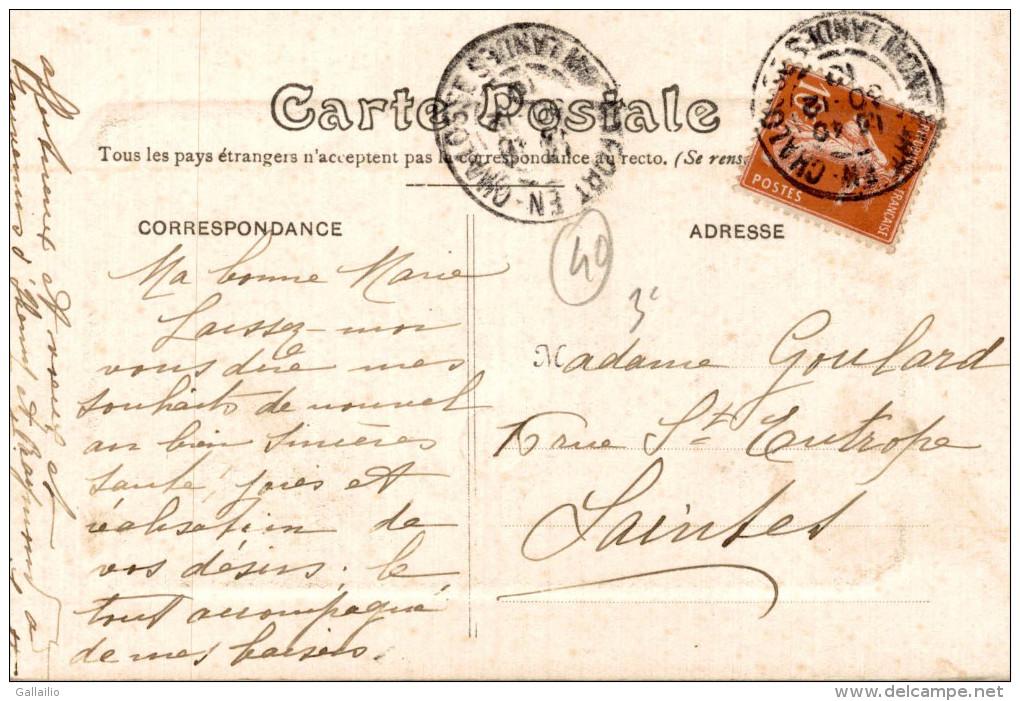 Carte Postale
Tous les pays étrangers n'acceptent pas la correspondance au recto. (Se rens
CORRESPONDANCE
Ma bonne Marie
Laissez-moi
vous dire mes
souhaits de nouvel
an bien sincères
santé, joies et
réalisation de
vos désirs; le
tout accompagné
de mes baisers
affectueux et
ADRESSE
Madame Goulard
6 rue St Eutrope
Saintes
40
3
EN-CHALOSSE
LANDES
EN-CHALOSSE
LANDES
10
POSTES
FRANÇAISE
Gallailio
delcampe.net